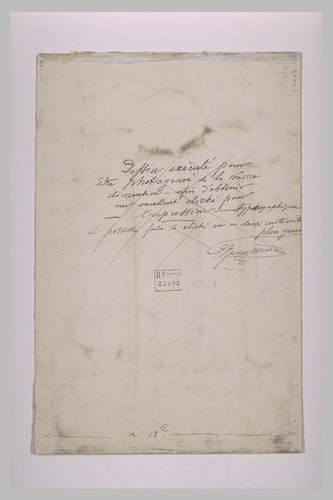 Dessin exécuté pour
être photogravé de la même
dimention — afin d'obtenir
un excellent cliché pour
— l'impression — typographique
Si possible faire le cliché un ou deux cent
plus grand
R.F.
22492
à 18c.